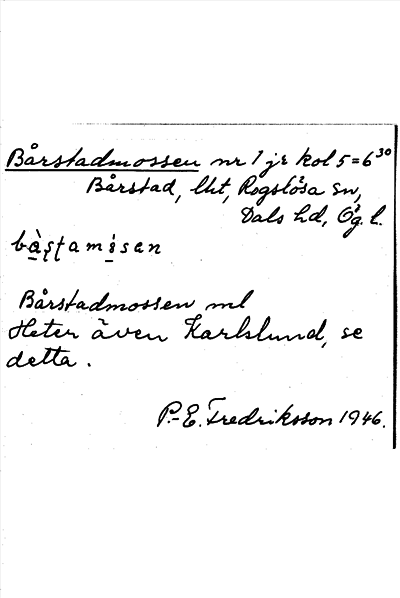 Bårstadmossen nr 1 jr kol 5=6³⁰
Bårstad, lht, Rogslösa sn,
Dals hd, Ög. l.
Bårstadmossen ml
Heter även Karlslund, se
detta.
P.-E. Fredriksson 1946.